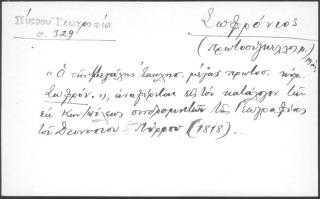 Πύρρου Γεωγραφία
σ. 329
Σωφρόνιος
(πρωτοσύγκελλος
"Ὁ τῆς Μεγάλης Ἐκκλησ. μέγας πρωτοσ. κύρ.
Σωφρόν.", ἀναφέρεται εἰς τὸν κατάλογον τῶν
ἐκ Κων/πόλεως συνδρομητῶν τῆς Γεωγραφίας
τοῦ Διονυσίου Πύρρου (1818).